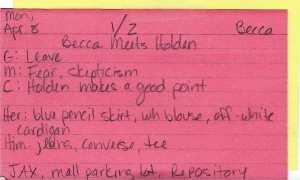 Mon,
Apr. 8 1/2 Becca
Becca Meets Holden
G: Leave
M: Fear, skepticism
C: Holden makes a good point
Her: blue pencil skirt, wh blouse, off-white
cardigan
Him: jeans, converse, tee
JAX, mall parking lot, Repository